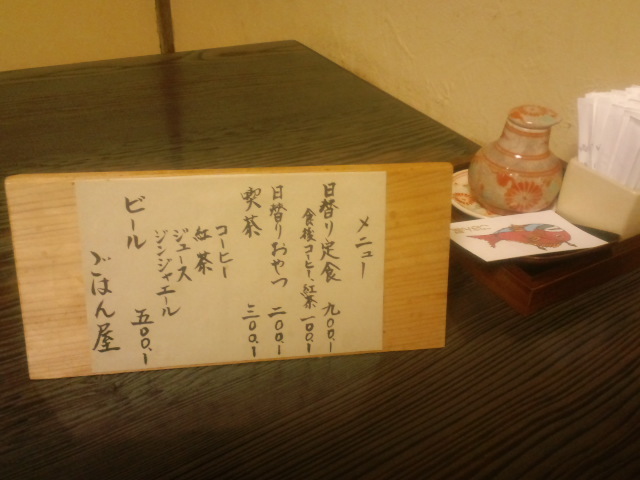 メニュー
日替り定食 九〇〇.ー
食後コーヒー、紅茶 一〇〇.ー
日替りおやつ 二〇〇.ー
喫茶 三〇〇.ー
コーヒー
紅茶
ジュース
ジンジャエール
ビール 五〇〇.ー
ごはん屋